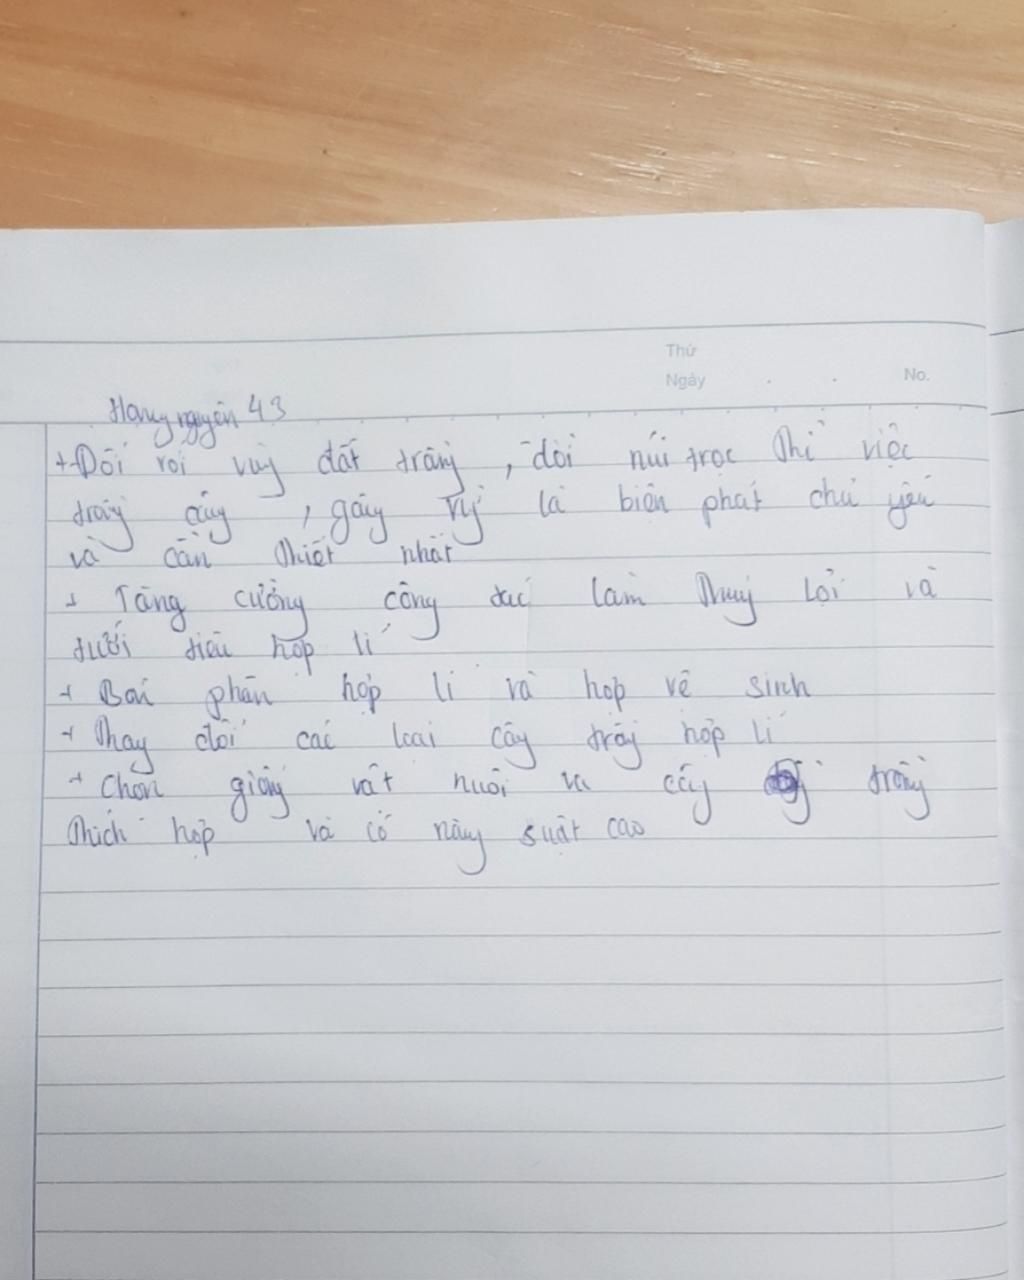 Thứ
Ngày
No.
Hoàng nguyên 43
+ Đối với vùng đất trống, đồi núi trọc thì việc
trồng cây, gây rừng là biện pháp chủ yếu
và cần thiết nhất
+ Tăng cường công tác làm thuỷ lợi và
tưới tiêu hợp lí
+ Bón phân hợp lí và hợp vệ sinh
+ Thay đổi các loại cây trồng hợp lí
+ Chọn giống vật nuôi và cây trồng
thích hợp và có năng suất cao